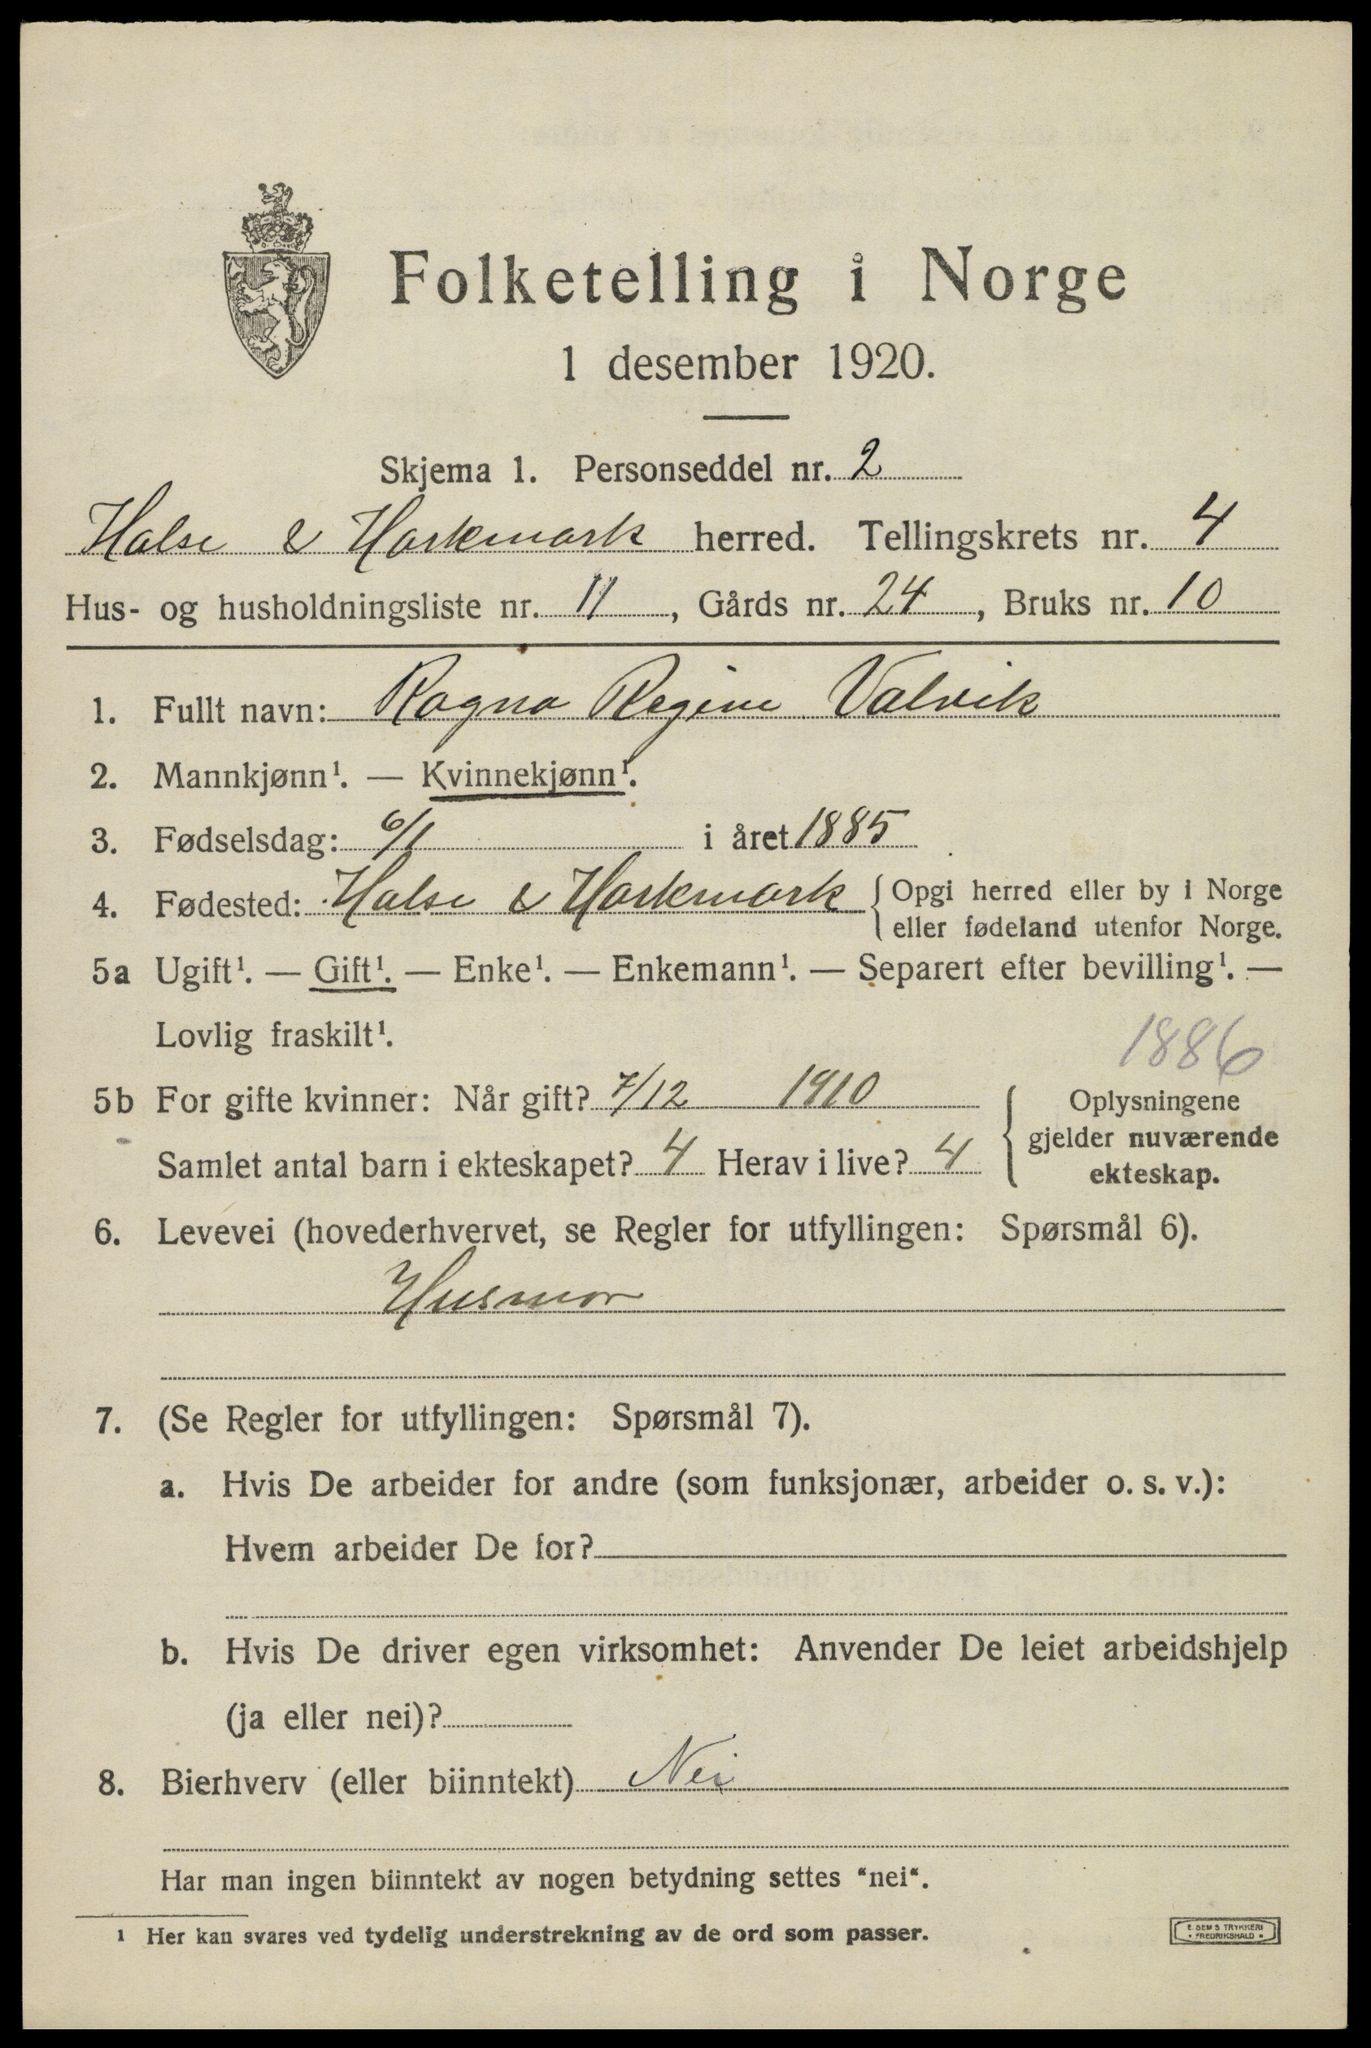 Folketelling i Norge
1 desember 1920.
Skjema 1. Personseddel nr. 2
Halse & Harkmark herred. Tellingskrets nr. 4
Hus- og husholdningsliste nr. 11, Gårds nr. 24, Bruks nr. 10
1. Fullt navn: Ragna Regine Valvik
2. Mannkjønn¹. — Kvinnekjønn¹.
3. Fødselsdag: 6/1 i året 1885
4. Fødested: Halse & Harkmark { Opgi herred eller by i Norge
eller fødeland utenfor Norge.
5a Ugift¹. — Gift¹. — Enke¹. — Enkemann¹. — Separert efter bevilling¹. —
Lovlig fraskilt¹.
1886
5b For gifte kvinner: Når gift? 7/12 1910
Samlet antal barn i ekteskapet? 4 Herav i live? 4
{ Oplysningene
gjelder nuværende
ekteskap.
6. Levevei (hovederhvervet, se Regler for utfyllingen: Spørsmål 6).
Husmor
7. (Se Regler for utfyllingen: Spørsmål 7).
a. Hvis De arbeider for andre (som funksjonær, arbeider o. s. v.):
Hvem arbeider De for?
b. Hvis De driver egen virksomhet: Anvender De leiet arbeidshjelp
(ja eller nei)?
8. Bierhverv (eller biinntekt) Nei
Har man ingen biinntekt av nogen betydning settes "nei".
1 Her kan svares ved tydelig understrekning av de ord som passer.
E. SEM'S TRYKKERI
• FREDRIKSHALD •